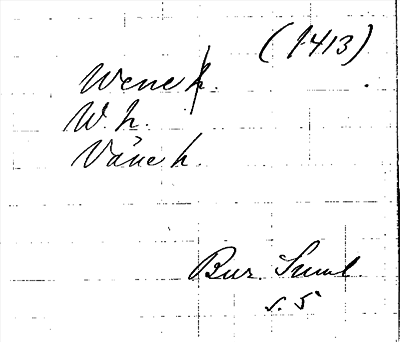 (1413)
Wene h.
W. h.
Väne h.
Bur. Suml.
s. 5